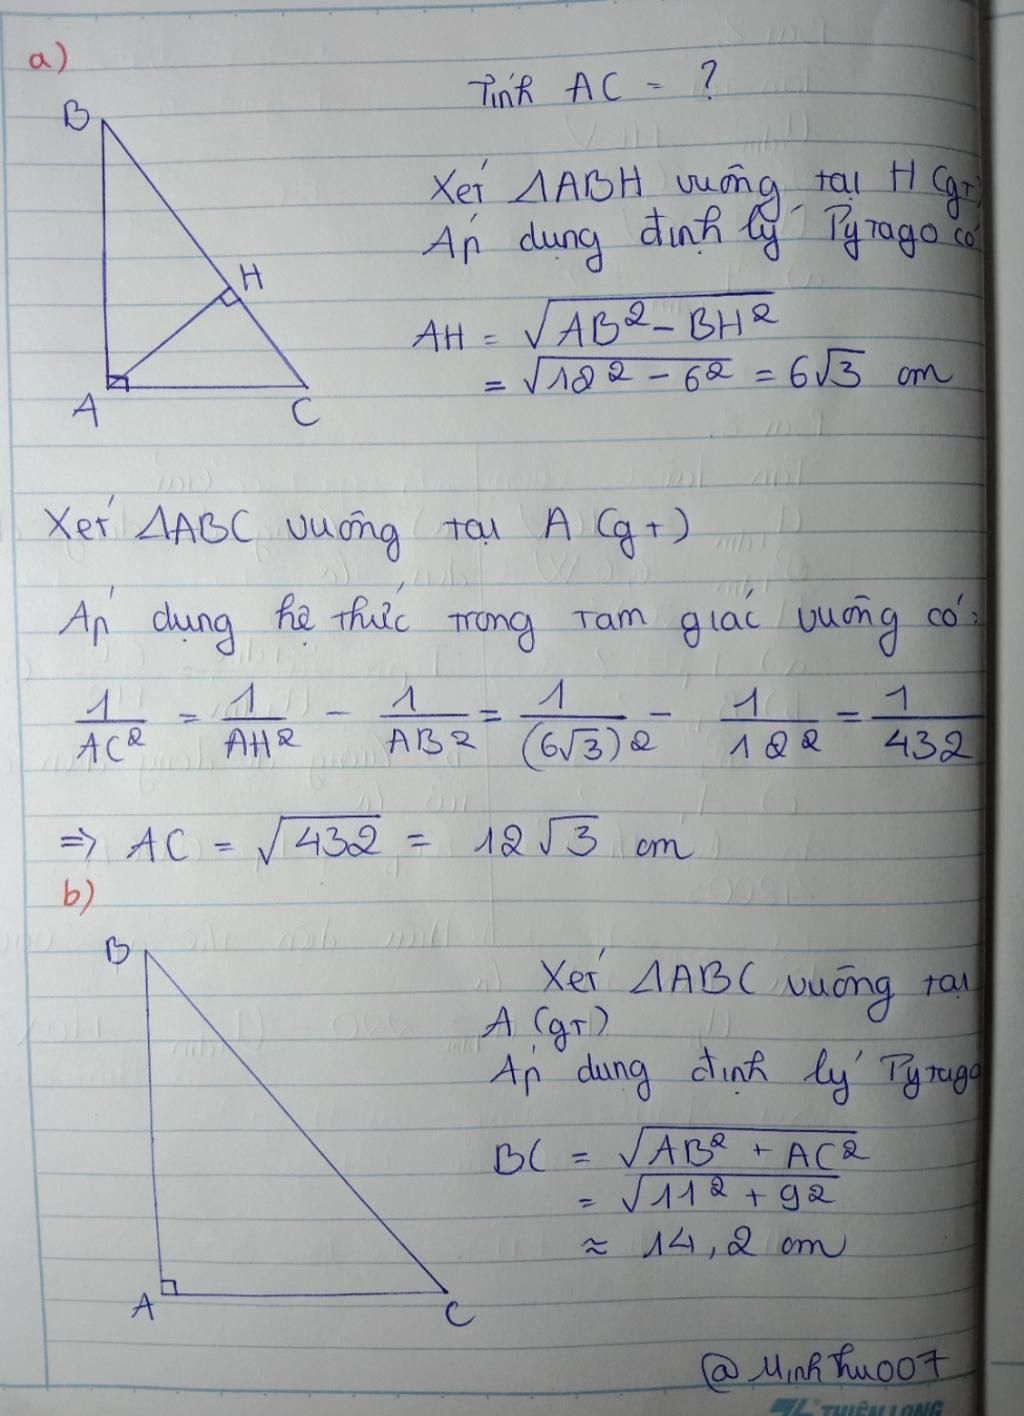 a)
Tính AC = ?
B
H
A
C
Xét ΔABH vuông tại H (gt)
Áp dụng định lý Pytago có
AH = √(AB² - BH²)
= √(12² - 6²) = 6√3 cm
Xét ΔABC vuông tại A (gt)
Áp dụng hệ thức trong tam giác vuông có:
1/AC² = 1/AH² - 1/AB² = 1/(6√3)² - 1/12² = 1/432
=> AC = √432 = 12√3 cm
b)
B
A
C
Xét ΔABC vuông tại
A (gt)
Áp dụng định lý Pytago
BC = √(AB² + AC²)
= √(11² + 9²)
≈ 14,2 cm
@MinhThu007
THIÊN LONG